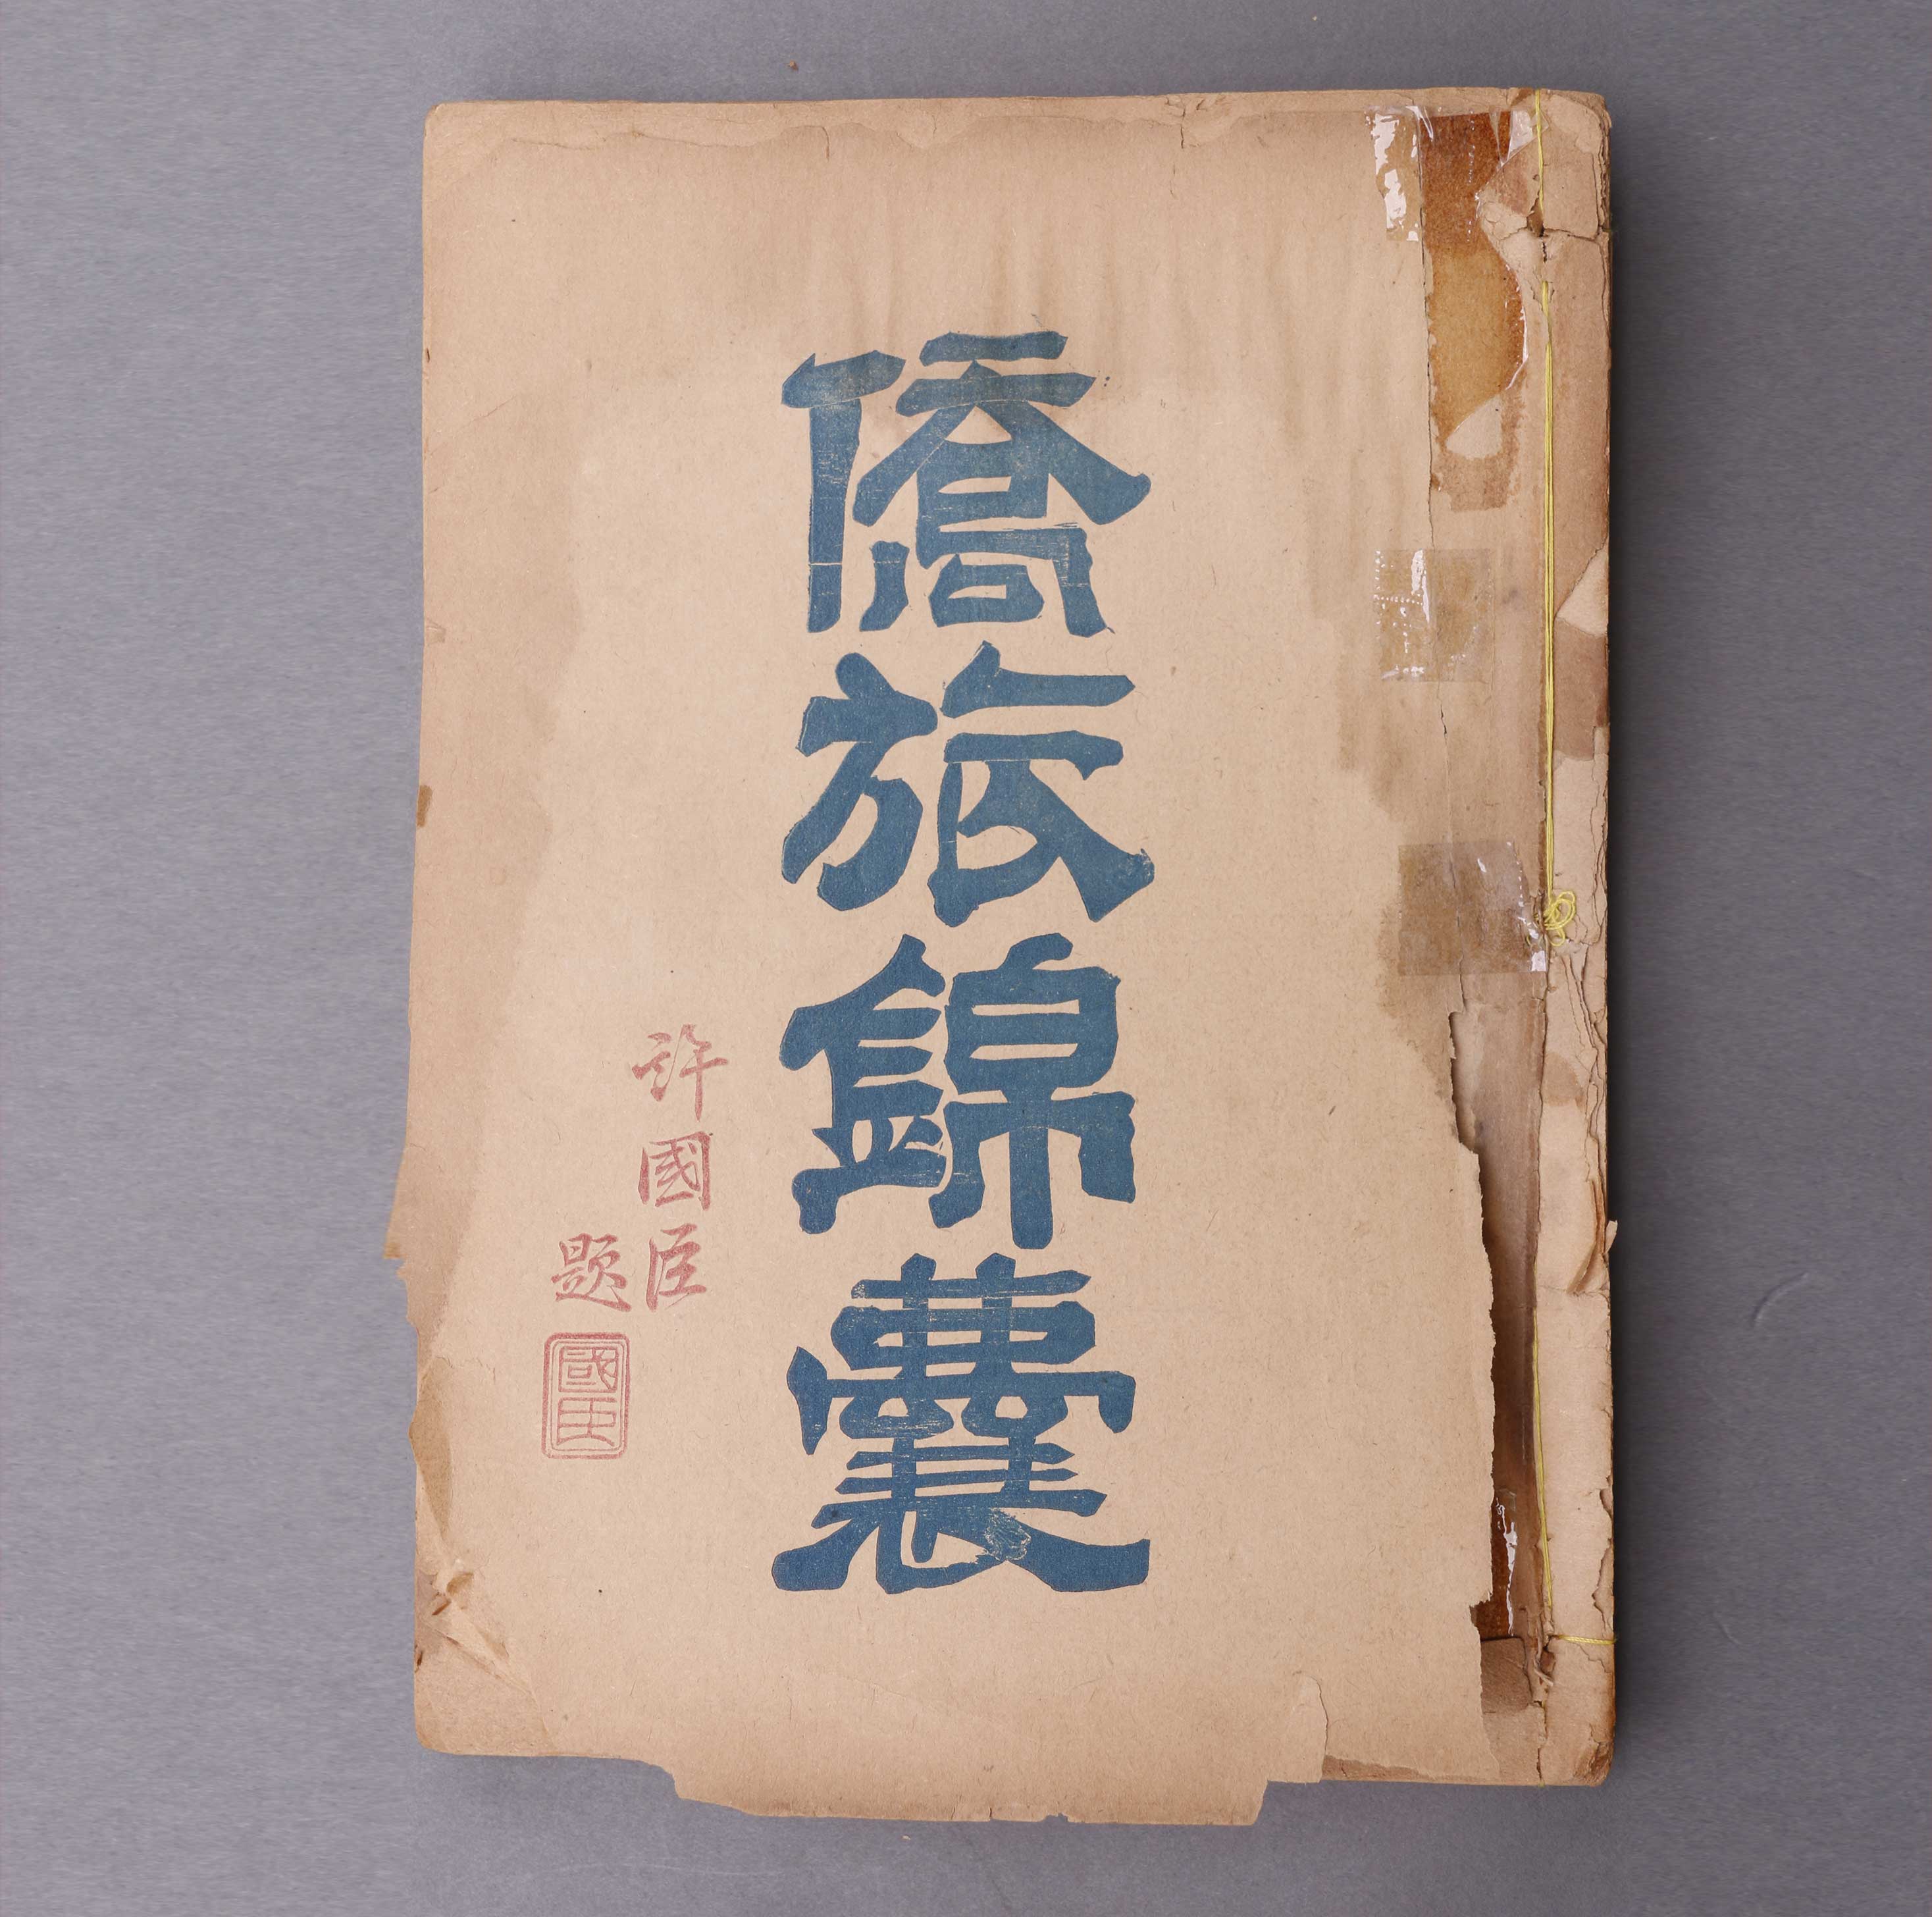 僑旅錦囊
許國臣
題
國臣